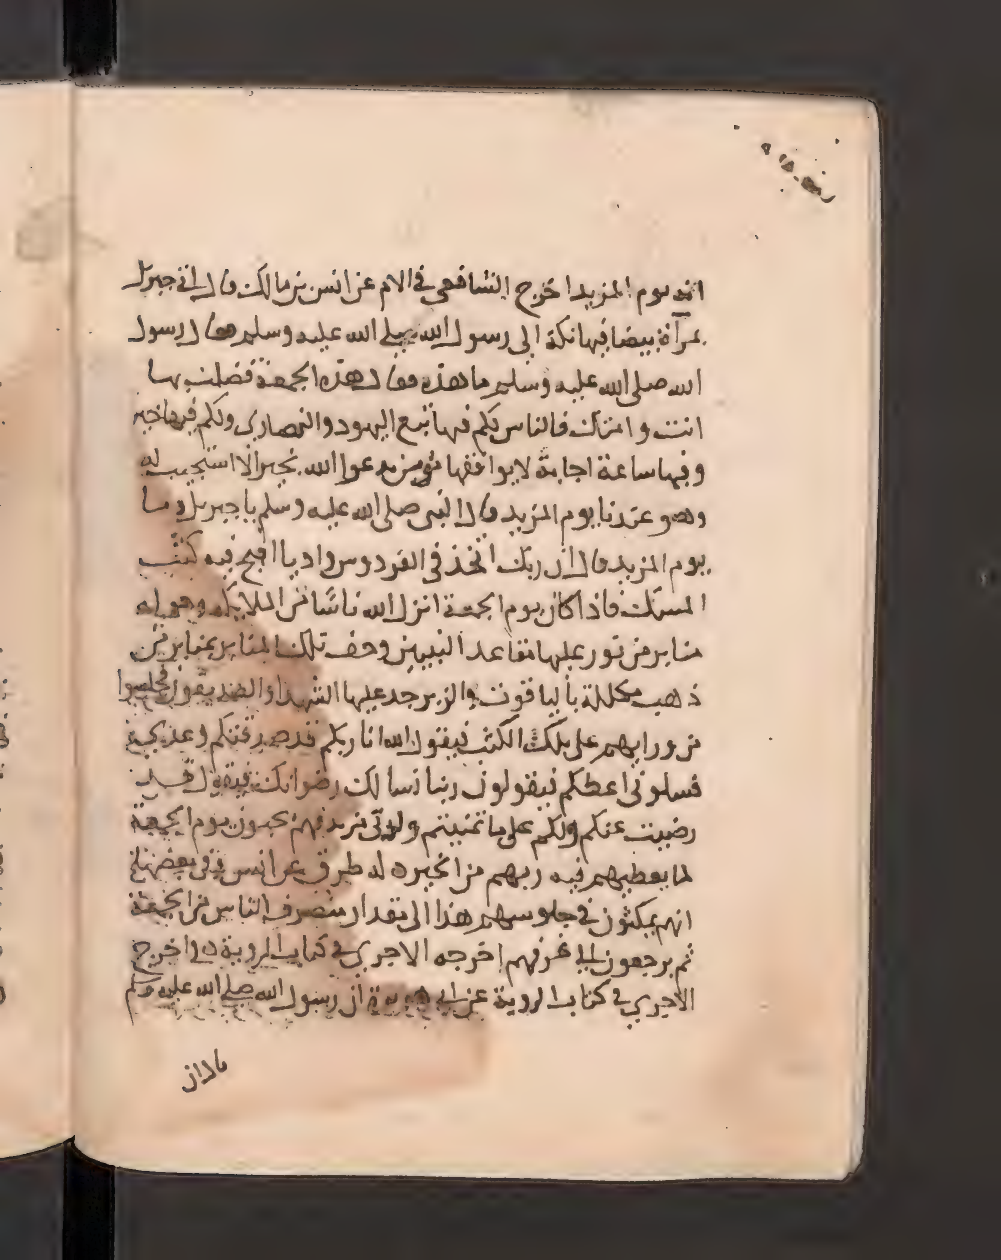 انه يوم المزيد اخرج الشافعي في الام عن انس بن مالك قال اتى جبريل
بمرآة بيضا فيها نكتة الى رسول الله صلى الله عليه وسلم فقال رسول
الله صلى الله عليه وسلم ما هذه فقال هذه الجمعة فضلت بها
انت وامتك فالناس لكم فيها تبع اليهود والنصارى ولكم فيها خير
وفيها ساعة اجابة لا يوافقها مومن يدعوا الله بخير الا استجيب له
وهو عندنا يوم المزيد قال النبى صلى الله عليه وسلم يا جبريل وما
يوم المزيد قال ان ربك اتخذ في الفردوس واديا افيح فيه كثب
المسك فاذا كان يوم الجمعة انزل الله ناسا من الملايكة وحوله
منابر من نور عليها مقاعد النبيين وحف تلك المنابر بمنابر من
ذهب مكللة بالياقوت والزبرجد عليها الشهدا والصديقون فجلسوا
من ورايهم على تلك الكثب فيقول الله انا ربكم قد صدقتكم وعدي
فسلونى اعطكم فيقولون ربنا نسالك رضوانك فيقول قد
رضيت عنكم ولكم على ما تمنيتم ولدي مزيد فهم يحبون يوم الجمعة
لما يعطيهم فيه ربهم من الخير له طرق عن انس وفي بعضها
انهم يمكثون في جلوسهم هذا الى مقدار منصرف الناس من الجمعة
ثم يرجعون الى غرفهم اخرجه الاجري في كتاب الروية واخرج
الاجري في كتاب الروية عن ابي هريرة ان رسول الله صلى الله عليه وسلم
قال ان